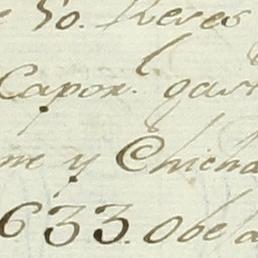 e 50. Reses
Capon. gast
me y Chicha
633. Obe